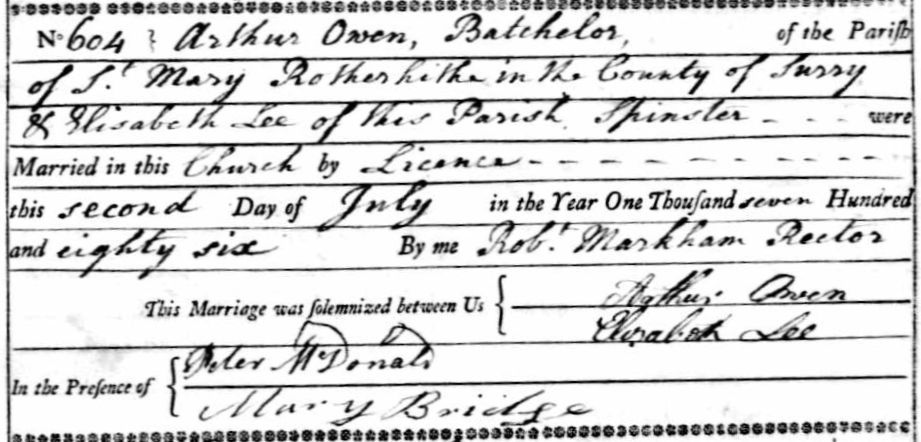 No 604 } Arthur Owen, Batchelor, of the Pariſh
of St Mary Rotherhithe in the County of Surry
& Elisabeth Lee of this Parish Spinster - - - were
Married in this Church by Licence - - - - - - - - - -
this second Day of July in the Year One Thouſand seven Hundred
and eighty six By me Robt Markham Rector
This Marriage was ſolemnized between Us { Arthur Owen
Elizabeth Lee
In the Preſence of { Peter McDonald
Mary Bridge